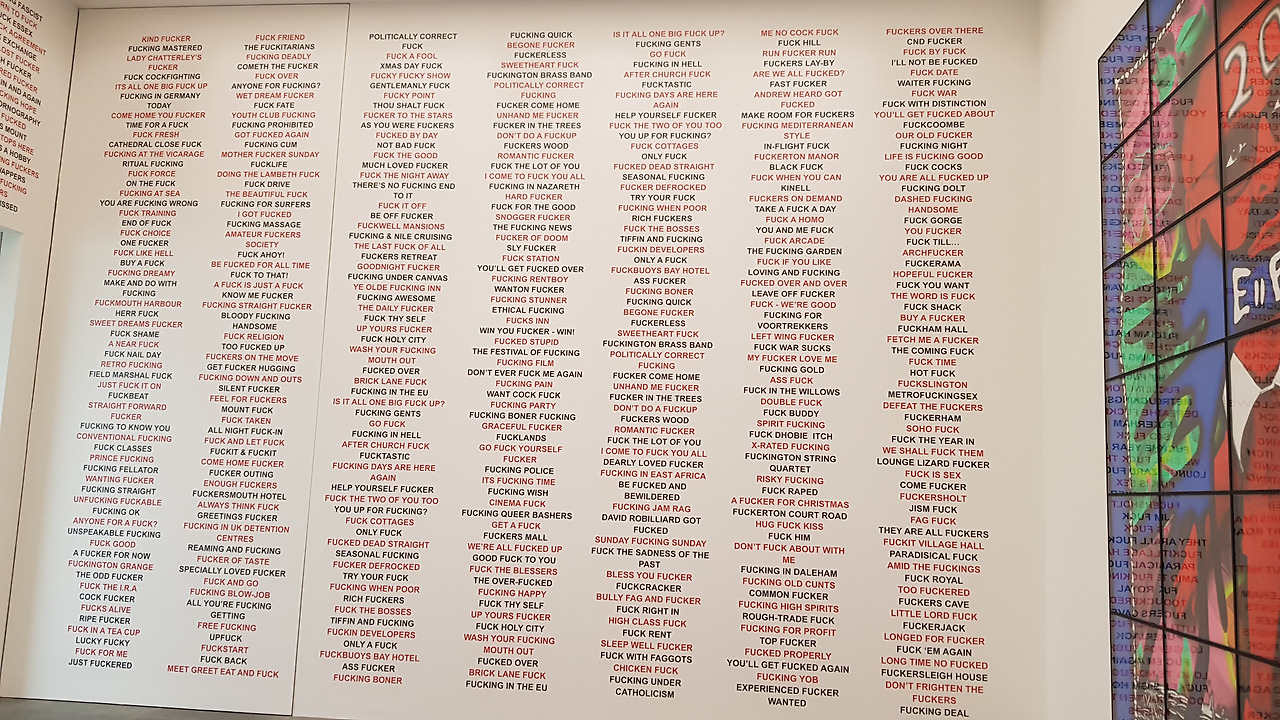 FASCIST
TO FUCK
ESSEX
AGREEMENT
CHANGE
FUCKER
AND AGAIN
HOPE
PORNOGRAPHY
FUCKED
S MOUTH
A HOBBY
FUCKERS
FUCKING
KIND FUCKER
FUCKING MASTERED
LADY CHATTERLEY'S
FUCKER
FUCK COCKFIGHTING
ITS ALL ONE BIG FUCK UP
FUCKING IN GERMANY
TODAY
COME HOME YOU FUCKER
TIME FOR A FUCK
FUCK FRESH
CATHEDRAL CLOSE FUCK
FUCKING AT THE VICARAGE
RITUAL FUCKING
FUCK FORCE
ON THE FUCK
FUCKING AT SEA
YOU ARE FUCKING WRONG
FUCK TRAINING
END OF FUCK
FUCK CHOICE
ONE FUCKER
FUCK LIKE HELL
BUY A FUCK
FUCKING DREAMY
MAKE AND DO WITH
FUCKING
FUCKMOUTH HARBOUR
HERR FUCK
SWEET DREAMS FUCKER
FUCK SHAME
A NEAR FUCK
FUCK NAIL DAY
RETRO FUCKING
FIELD MARSHAL FUCK
JUST FUCK IT ON
FUCKBEAT
STRAIGHT FORWARD
FUCKER
FUCKING TO KNOW YOU
CONVENTIONAL FUCKING
FUCK CLASSES
PRINCE FUCKING
FUCKING FELLATOR
WANTING FUCKER
FUCKING STRAIGHT
UNFUCKING FUCKABLE
FUCKING OK
ANYONE FOR A FUCK?
UNSPEAKABLE FUCKING
FUCK GOOD
A FUCKER FOR NOW
FUCKINGTON GRANGE
THE ODD FUCKER
FUCK THE I.R.A
COCK FUCKER
FUCKS ALIVE
RIPE FUCKER
FUCK IN A TEA CUP
LUCKY FUCKY
FUCK FOR ME
JUST FUCKERED
FUCK FRIEND
THE FUCKITARIANS
FUCKING DEADLY
COMETH THE FUCKER
FUCK OVER
ANYONE FOR FUCKING?
WET DREAM FUCKER
FUCK FATE
YOUTH CLUB FUCKING
FUCKING PROHIBITED
GOT FUCKED AGAIN
FUCKING CUM
MOTHER FUCKER SUNDAY
FUCKLIFE
DOING THE LAMBETH FUCK
FUCK DRIVE
THE BEAUTIFUL FUCK
FUCKING FOR SURFERS
I GOT FUCKED
FUCKING MASSAGE
AMATEUR FUCKERS
SOCIETY
FUCK AHOY!
BE FUCKED FOR ALL TIME
FUCK TO THAT!
A FUCK IS JUST A FUCK
KNOW ME FUCKER
FUCKING STRAIGHT FUCKER
BLOODY FUCKING
HANDSOME
FUCK RELIGION
TOO FUCKED UP
FUCKERS ON THE MOVE
GET FUCKER HUGGING
FUCKING DOWN AND OUTS
SILENT FUCKER
FEEL FOR FUCKERS
MOUNT FUCK
FUCK TAKEN
ALL NIGHT FUCK-IN
FUCK AND LET FUCK
FUCKIT & FUCKIT
COME HOME FUCKER
FUCKER OUTING
ENOUGH FUCKERS
FUCKERSMOUTH HOTEL
ALWAYS THINK FUCK
GREETINGS FUCKER
FUCKING IN UK DETENTION
CENTRES
REAMING AND FUCKING
FUCKER OF TASTE
SPECIALLY LOVED FUCKER
FUCK AND GO
FUCKING BLOW-JOB
ALL YOU'RE FUCKING
GETTING
FREE FUCKING
UPFUCK
FUCKSTART
FUCK BACK
MEET GREET EAT AND FUCK
POLITICALLY CORRECT
FUCK
FUCK A FOOL
XMAS DAY FUCK
FUCKY FUCKY SHOW
GENTLEMANLY FUCK
FUCKY POINT
THOU SHALT FUCK
FUCKER TO THE STARS
AS YOU WERE FUCKERS
FUCKED BY DAY
NOT BAD FUCK
FUCK THE GOOD
MUCH LOVED FUCKER
FUCK THE NIGHT AWAY
THERE'S NO FUCKING END
TO IT
FUCK IT OFF
BE OFF FUCKER
FUCKWELL MANSIONS
FUCKING & NILE CRUISING
THE LAST FUCK OF ALL
FUCKERS RETREAT
GOODNIGHT FUCKER
FUCKING UNDER CANVAS
YE OLDE FUCKING INN
FUCKING AWESOME
THE DAILY FUCKER
FUCK THY SELF
UP YOURS FUCKER
FUCK HOLY CITY
WASH YOUR FUCKING
MOUTH OUT
FUCKED OVER
BRICK LANE FUCK
FUCKING IN THE EU
IS IT ALL ONE BIG FUCK UP?
FUCKING GENTS
GO FUCK
FUCKING IN HELL
AFTER CHURCH FUCK
FUCKTASTIC
FUCKING DAYS ARE HERE
AGAIN
HELP YOURSELF FUCKER
FUCK THE TWO OF YOU TOO
YOU UP FOR FUCKING?
FUCK COTTAGES
ONLY FUCK
FUCKED DEAD STRAIGHT
SEASONAL FUCKING
FUCKER DEFROCKED
TRY YOUR FUCK
FUCKING WHEN POOR
RICH FUCKERS
FUCK THE BOSSES
TIFFIN AND FUCKING
FUCKIN DEVELOPERS
ONLY A FUCK
FUCKBUOYS BAY HOTEL
ASS FUCKER
FUCKING BONER
FUCKING QUICK
BEGONE FUCKER
FUCKERLESS
SWEETHEART FUCK
FUCKINGTON BRASS BAND
POLITICALLY CORRECT
FUCKING
FUCKER COME HOME
UNHAND ME FUCKER
FUCKER IN THE TREES
DON'T DO A FUCKUP
FUCKERS WOOD
ROMANTIC FUCKER
FUCK THE LOT OF YOU
I COME TO FUCK YOU ALL
FUCKING IN NAZARETH
HARD FUCKER
FUCK FOR THE GOOD
SNOGGER FUCKER
THE FUCKING NEWS
FUCKER OF DOOM
SLY FUCKER
FUCK STATION
YOU'LL GET FUCKED OVER
FUCKING RENTBOY
WANTON FUCKER
FUCKING STUNNER
ETHICAL FUCKING
FUCKS INN
WIN YOU FUCKER - WIN!
FUCKED STUPID
THE FESTIVAL OF FUCKING
FUCKING FILM
DON'T EVER FUCK ME AGAIN
FUCKING PAIN
WANT COCK FUCK
FUCKING PARTY
FUCKING BONER FUCKING
GRACEFUL FUCKER
FUCKLANDS
GO FUCK YOURSELF
FUCKER
FUCKING POLICE
ITS FUCKING TIME
FUCKING WISH
CINEMA FUCK
FUCKING QUEER BASHERS
GET A FUCK
FUCKERS MALL
WE'RE ALL FUCKED UP
GOOD FUCK TO YOU
FUCK THE BLESSERS
THE OVER-FUCKED
FUCKING HAPPY
FUCK THY SELF
UP YOURS FUCKER
FUCK HOLY CITY
WASH YOUR FUCKING
MOUTH OUT
FUCKED OVER
BRICK LANE FUCK
FUCKING IN THE EU
IS IT ALL ONE BIG FUCK UP?
FUCKING GENTS
GO FUCK
FUCKING IN HELL
AFTER CHURCH FUCK
FUCKTASTIC
FUCKING DAYS ARE HERE
AGAIN
HELP YOURSELF FUCKER
FUCK THE TWO OF YOU TOO
YOU UP FOR FUCKING?
FUCK COTTAGES
ONLY FUCK
FUCKED DEAD STRAIGHT
SEASONAL FUCKING
FUCKER DEFROCKED
TRY YOUR FUCK
FUCKING WHEN POOR
RICH FUCKERS
FUCK THE BOSSES
TIFFIN AND FUCKING
FUCKIN DEVELOPERS
ONLY A FUCK
FUCKBUOYS BAY HOTEL
ASS FUCKER
FUCKING BONER
FUCKING QUICK
BEGONE FUCKER
FUCKERLESS
SWEETHEART FUCK
FUCKINGTON BRASS BAND
POLITICALLY CORRECT
FUCKING
FUCKER COME HOME
UNHAND ME FUCKER
FUCKER IN THE TREES
DON'T DO A FUCKUP
FUCKERS WOOD
ROMANTIC FUCKER
FUCK THE LOT OF YOU
I COME TO FUCK YOU ALL
DEARLY LOVED FUCKER
FUCKING IN EAST AFRICA
BE FUCKED AND
BEWILDERED
FUCKING JAM RAG
DAVID ROBILLIARD GOT
FUCKED
SUNDAY FUCKING SUNDAY
FUCK THE SADNESS OF THE
PAST
BLESS YOU FUCKER
FUCKCRACKER
BULLY FAG AND FUCKER
FUCK RIGHT IN
HIGH CLASS FUCK
FUCK RENT
SLEEP WELL FUCKER
FUCK WITH FAGGOTS
CHICKEN FUCK
FUCKING UNDER
CATHOLICISM
ME NO COCK FUCK
FUCK HILL
RUN FUCKER RUN
FUCKERS LAY-BY
ARE WE ALL FUCKED?
FAST FUCKER
ANDREW HEARD GOT
FUCKED
MAKE ROOM FOR FUCKERS
FUCKING MEDITERRANEAN
STYLE
IN-FLIGHT FUCK
FUCKERTON MANOR
BLACK FUCK
FUCK WHEN YOU CAN
KINELL
FUCKERS ON DEMAND
TAKE A FUCK A DAY
FUCK A HOMO
YOU AND ME FUCK
FUCK ARCADE
THE FUCKING GARDEN
FUCK IF YOU LIKE
LOVING AND FUCKING
FUCKED OVER AND OVER
LEAVE OFF FUCKER
FUCK - WE'RE GOOD
FUCKING FOR
VOORTREKKERS
LEFT WING FUCKER
FUCK WAR SUCKS
MY FUCKER LOVE ME
FUCKING GOLD
ASS FUCK
FUCK IN THE WILLOWS
DOUBLE FUCK
FUCK BUDDY
SPIRIT FUCKING
FUCK DHOBIE ITCH
X-RATED FUCKING
FUCKINGTON STRING
QUARTET
RISKY FUCKING
FUCK RAPED
A FUCKER FOR CHRISTMAS
FUCKERTON COURT ROAD
HUG FUCK KISS
FUCK HIM
DON'T FUCK ABOUT WITH
ME
FUCKING IN DALEHAM
FUCKING OLD CUNTS
COMMON FUCKER
FUCKING HIGH SPIRITS
ROUGH-TRADE FUCK
FUCKING FOR PROFIT
TOP FUCKER
FUCKED PROPERLY
YOU'LL GET FUCKED AGAIN
FUCKING YOB
EXPERIENCED FUCKER
WANTED
FUCKERS OVER THERE
CND FUCKER
FUCK BY FUCK
I'LL NOT BE FUCKED
FUCK DATE
WAITER FUCKING
FUCK WAR
FUCK WITH DISTINCTION
YOU'LL GET FUCKED ABOUT
FUCKCOOMBE
OUR OLD FUCKER
FUCKING NIGHT
LIFE IS FUCKING GOOD
FUCK COCKS
YOU ARE ALL FUCKED UP
FUCKING DOLT
DASHED FUCKING
HANDSOME
FUCK GORGE
YOU FUCKER
FUCK TILL...
ARCHFUCKER
FUCKERAMA
HOPEFUL FUCKER
FUCK YOU WANT
THE WORD IS FUCK
FUCK SHACK
BUY A FUCKER
FUCKHAM HALL
FETCH ME A FUCKER
THE COMING FUCK
FUCK TIME
HOT FUCK
FUCKSLINGTON
METROFUCKINGSEX
DEFEAT THE FUCKERS
FUCKERHAM
SOHO FUCK
FUCK THE YEAR IN
WE SHALL FUCK THEM
LOUNGE LIZARD FUCKER
FUCK IS SEX
COME FUCKER
FUCKERSHOLT
JISM FUCK
FAG FUCK
THEY ARE ALL FUCKERS
FUCKIT VILLAGE HALL
PARADISICAL FUCK
AMID THE FUCKINGS
FUCK ROYAL
TOO FUCKERED
FUCKERS CAVE
LITTLE LORD FUCK
FUCKERJACK
LONGED FOR FUCKER
FUCK 'EM AGAIN
LONG TIME NO FUCKED
FUCKERSLEIGH HOUSE
DON'T FRIGHTEN THE
FUCKERS
FUCKING DEAL